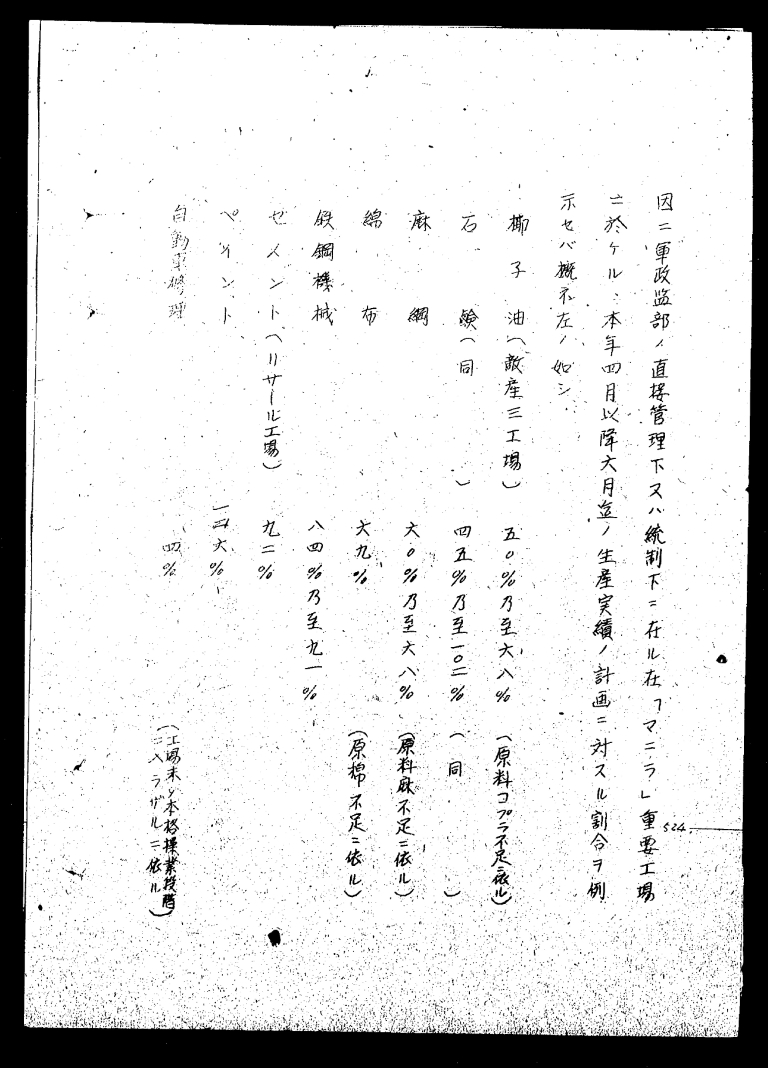 因ニ軍政監部ノ直接管理下又ハ統制下ニ在ル在「マニラ」重要工場
ニ於ケル、本年四月以降六月迄ノ生産実績ノ計画ニ対スル割合ヲ例
示セバ概ネ左ノ如シ
椰子油(敵産三工場) 五〇%乃至六八% (原料コプラ不足ニ依ル)
石鹸(同) 四五%乃至一〇二% (同)
麻綱 六〇%乃至六八% (原料麻不足ニ依ル)
綿布 六九% (原棉不足ニ依ル)
鉄鋼機械 八四%乃至九一%
セメント(リサール工場) 九二%
ペイント 六%
自動車修理 四% (工場未ダ本格操業段階
ニ入ラザルニ依ル)
524